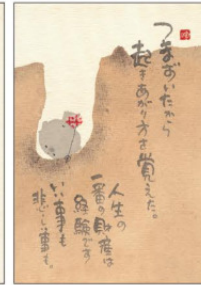 つまずいたから
起きあがり方を覚えた。
人生の
一番の財産は
経験です
いい事も
悲しい事も。